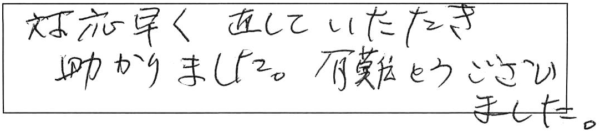 対応早く 直していただき
助かりました。有難とうござい
ました。